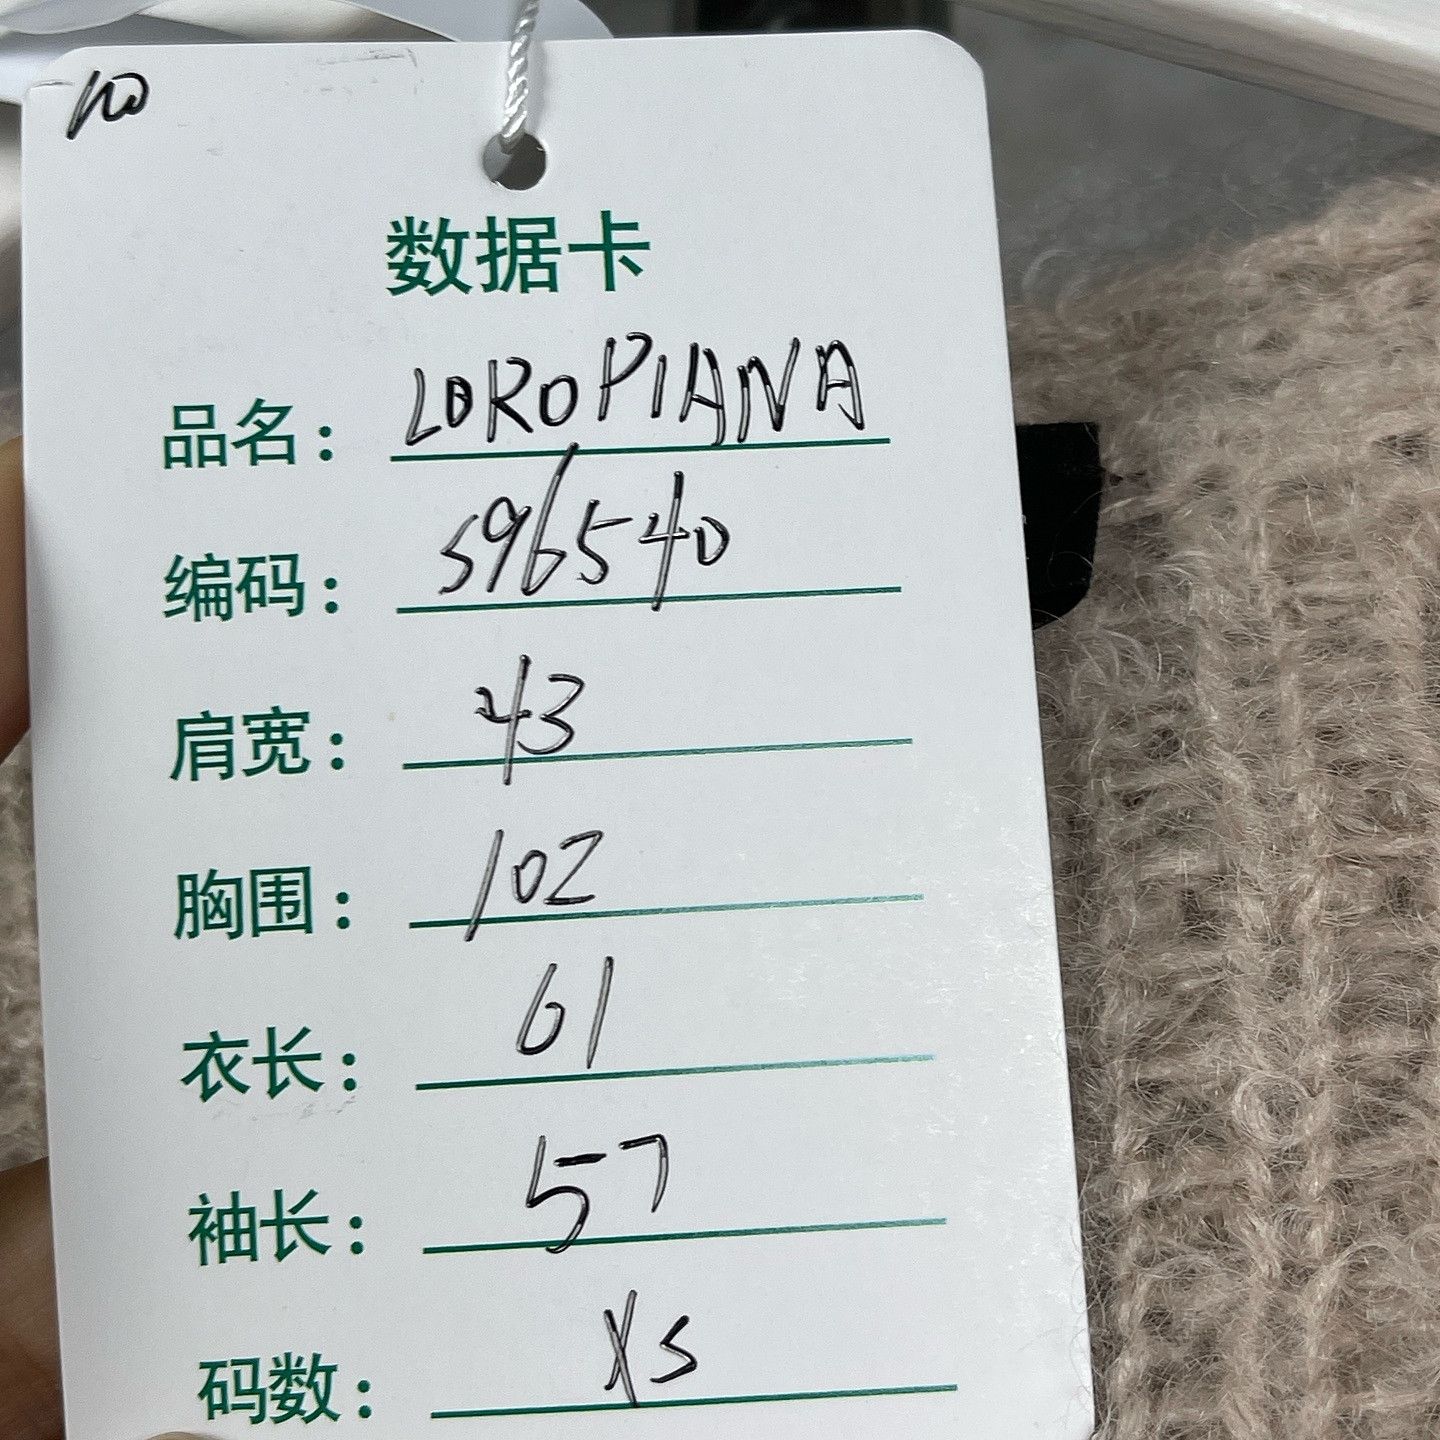 100
数据卡
品名： LOROPIANA
编码： 596540
肩宽： 43
胸围： 102
衣长： 61
袖长： 57
码数： XS